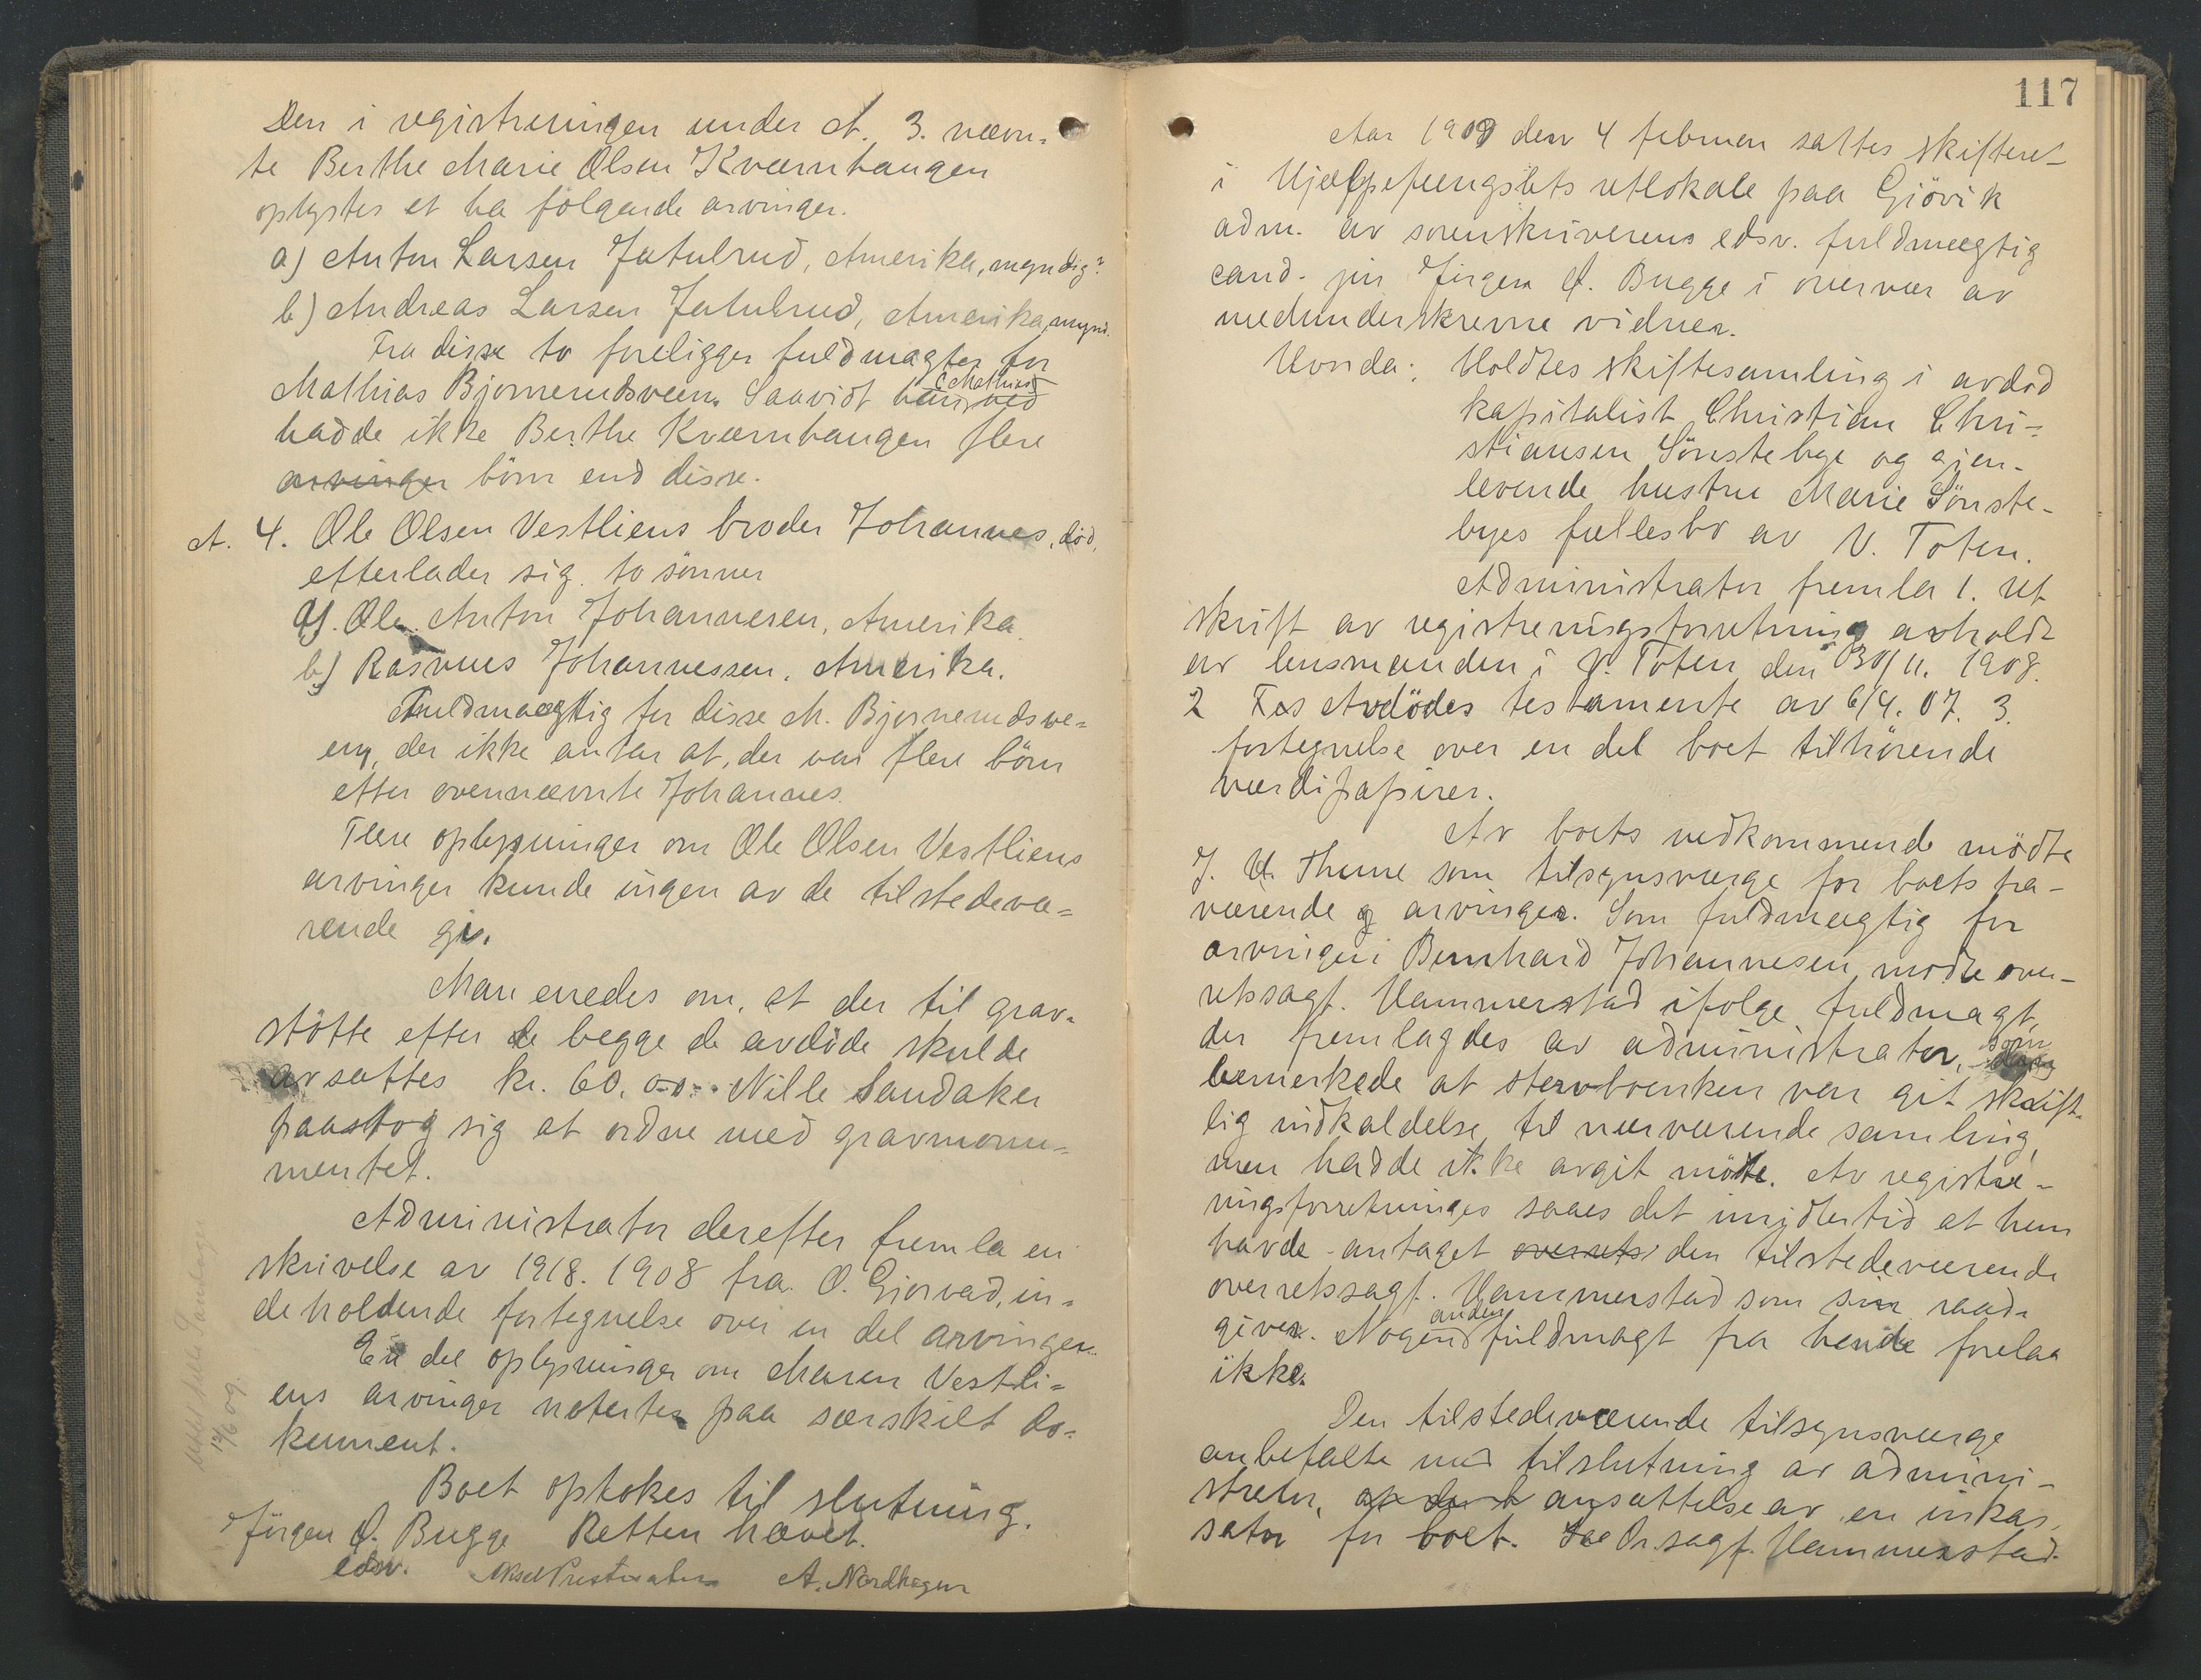 Den i registreringen under A. 3. nævn-
te Berthe Marie Olsen Kværnhaugen
oplystes at ha følgende arvinger.
a) Anton Larsen Jutulrud, Amerika, myndig?
b) Andreas Larsen Jutulrud, Amerika, mynd.
Fra disse to foreligger fuldmagter for
Mathias Bjørnerudsveen. Saavidt han (Mathias) ved
hadde ikke Berthe Kværnhaugen flere
arvinger børn end disse.
A. 4. Ole Olsen Vestliens broder Johannes, död,
efterlader sig to sønner
a). Ole Anton Johannesen, Amerika.
b) Rasmus Johannessen, Amerika.
Fuldmægtig for disse M. Bjørnerudsve-
en, der ikke antar at der var flere børn
efter ovennævnte Johannes.
Flere oplysninger om Ole Olsen Vestliens
arvinger kunde ingen av de tilstedevæ-
rende gi.
Man enedes om, at der til grav-
støtte efter de begge de avdöde skulde
avsættes kr. 60,00. Nille Sandaker
paastog sig at ordne med gravmonu-
mentet.
Administrator derefter fremla en
skrivelse av 19/8. 1908 fra O. Gjørvad, in-
deholdende fortegnelse over en del arvinger.
En del oplysninger om Maren Vestli-
ens arvinger notertes paa særskilt do-
kument.
Boet optokes til slutning.
Retten hævet.
Jörgen A. Bugge
edsv. Aksel Prestesæter A. Nordhagen
12/6 09.
117
Aar 1909 den 4 februar sattes skifteret
i Hjælpefængslets retlokale paa Gjövik
adm. av sorenskriverens edsv. fuldmægtig
cand. jur Jörgen A. Bugge i overvær av
medunderskrevne vidner.
Hvorda: Holdtes skiftesamling i avdød
kapitalist Christian Chri-
stiansen Sönstebye og gjen-
levende hustru Marie Sönste-
byes fællesbo av V. Toten.
Administrator fremla 1. Ut
skrift av registreringsforretning avholdt
av lensmanden i V. Toten den 30/11. 1908.
2 Avdödes testamente av 6/4. 07. 3.
fortegnelse over en del boet tilhörende
værdipapirer.
Av boets vedkommende mödte
J. H. Thune som tilsynsværge for boets fra-
værende arvinger. Som fuldmægtig for
arvingen Bernhard Johannesen mødte over-
retssagf. Hammerstad ifölge fuldmagt,
der fremlagdes av administrator, som
bemerkede at stervboenken var git skrift-
lig indkaldelse til nærværende samling,
men hadde ikke avgit møte. Av registre-
ringsforretninges saaes det imidlertid at hun
havde antaget overrets den tilstedeværende
overretssagf. Hammerstad som sin raad-
giver. Nogen anden fuldmagt fra hende forelaa
ikke.
Den tilstedeværende tilsynsværge
anbefalte med tilslutning av admini-
strator, ansættelse av en inkas-
sator for boet. Or.sagf. Hammerstad